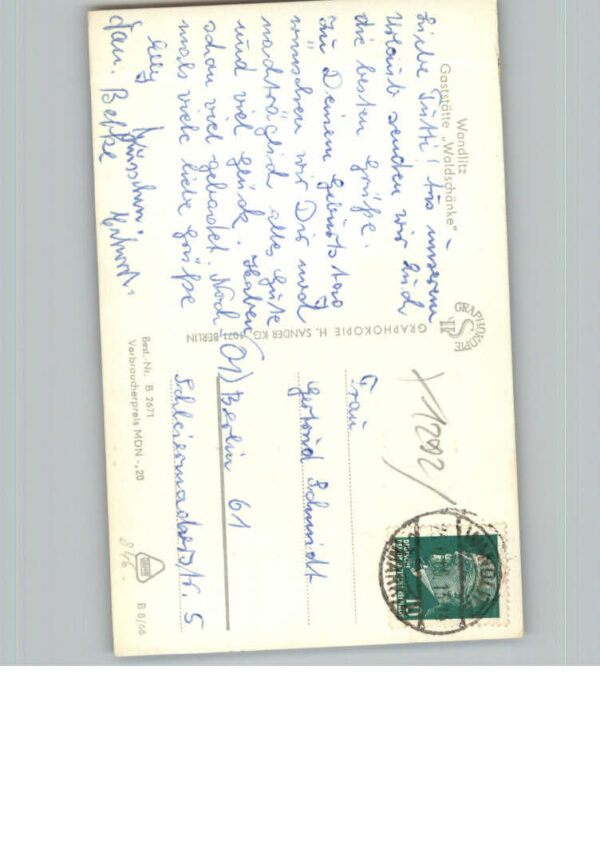 Wandlitz
Gaststätte „Waldschänke"
Liebe Tutti! Aus unserem
Urlaub senden wir Euch
die besten Grüße.
Zu Deinem Geburtstag
wünschen wir Dir noch
nachträglich alles Gute
und viel Glück. Haben
schon viel gebadet. Noch-
mals viele liebe Grüße
Elly
Fam. Bethe
GRAPHOKOPIE
GRAPHOKOPIE H. SANDER KG 1071 BERLIN
X1292/
10
Frau
Gertrud Schmidt
(01) Berlin 61
Schleiermacherstr. 5
Best.-Nr. B 2671
Verbraucherpreis MDN -,20
B 8/66